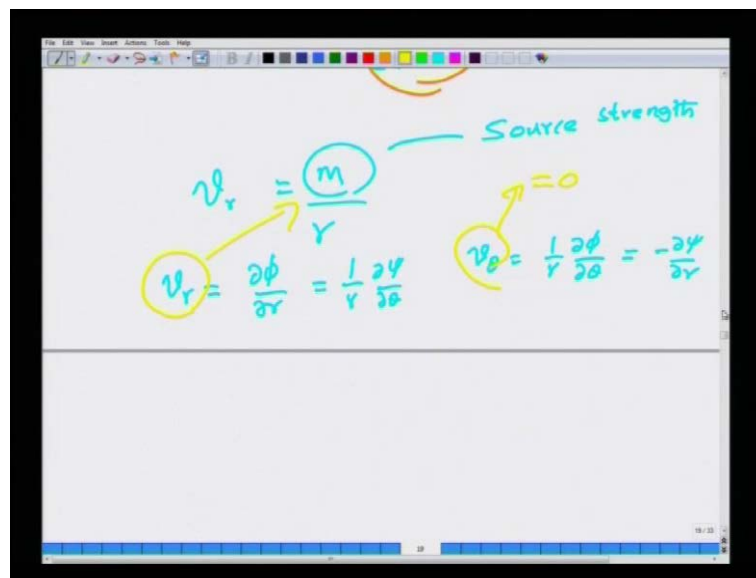 File Edit View Insert Actions Tools Help
B I
Source strength
v_r = m/r
= 0
v_r = ∂φ/∂r = 1/r ∂ψ/∂θ
v_θ = 1/r ∂φ/∂θ = -∂ψ/∂r
19